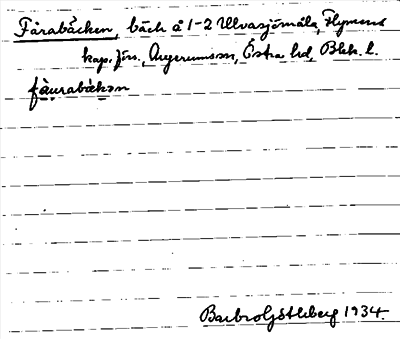 Fårabäcken, bäck å 1-2 Ulvasjömåla, Flymens
kap. förs., Augerums sn, Östra hd, Blek. l.
få̀urabä̀kən
Barbro Göthberg 1934.